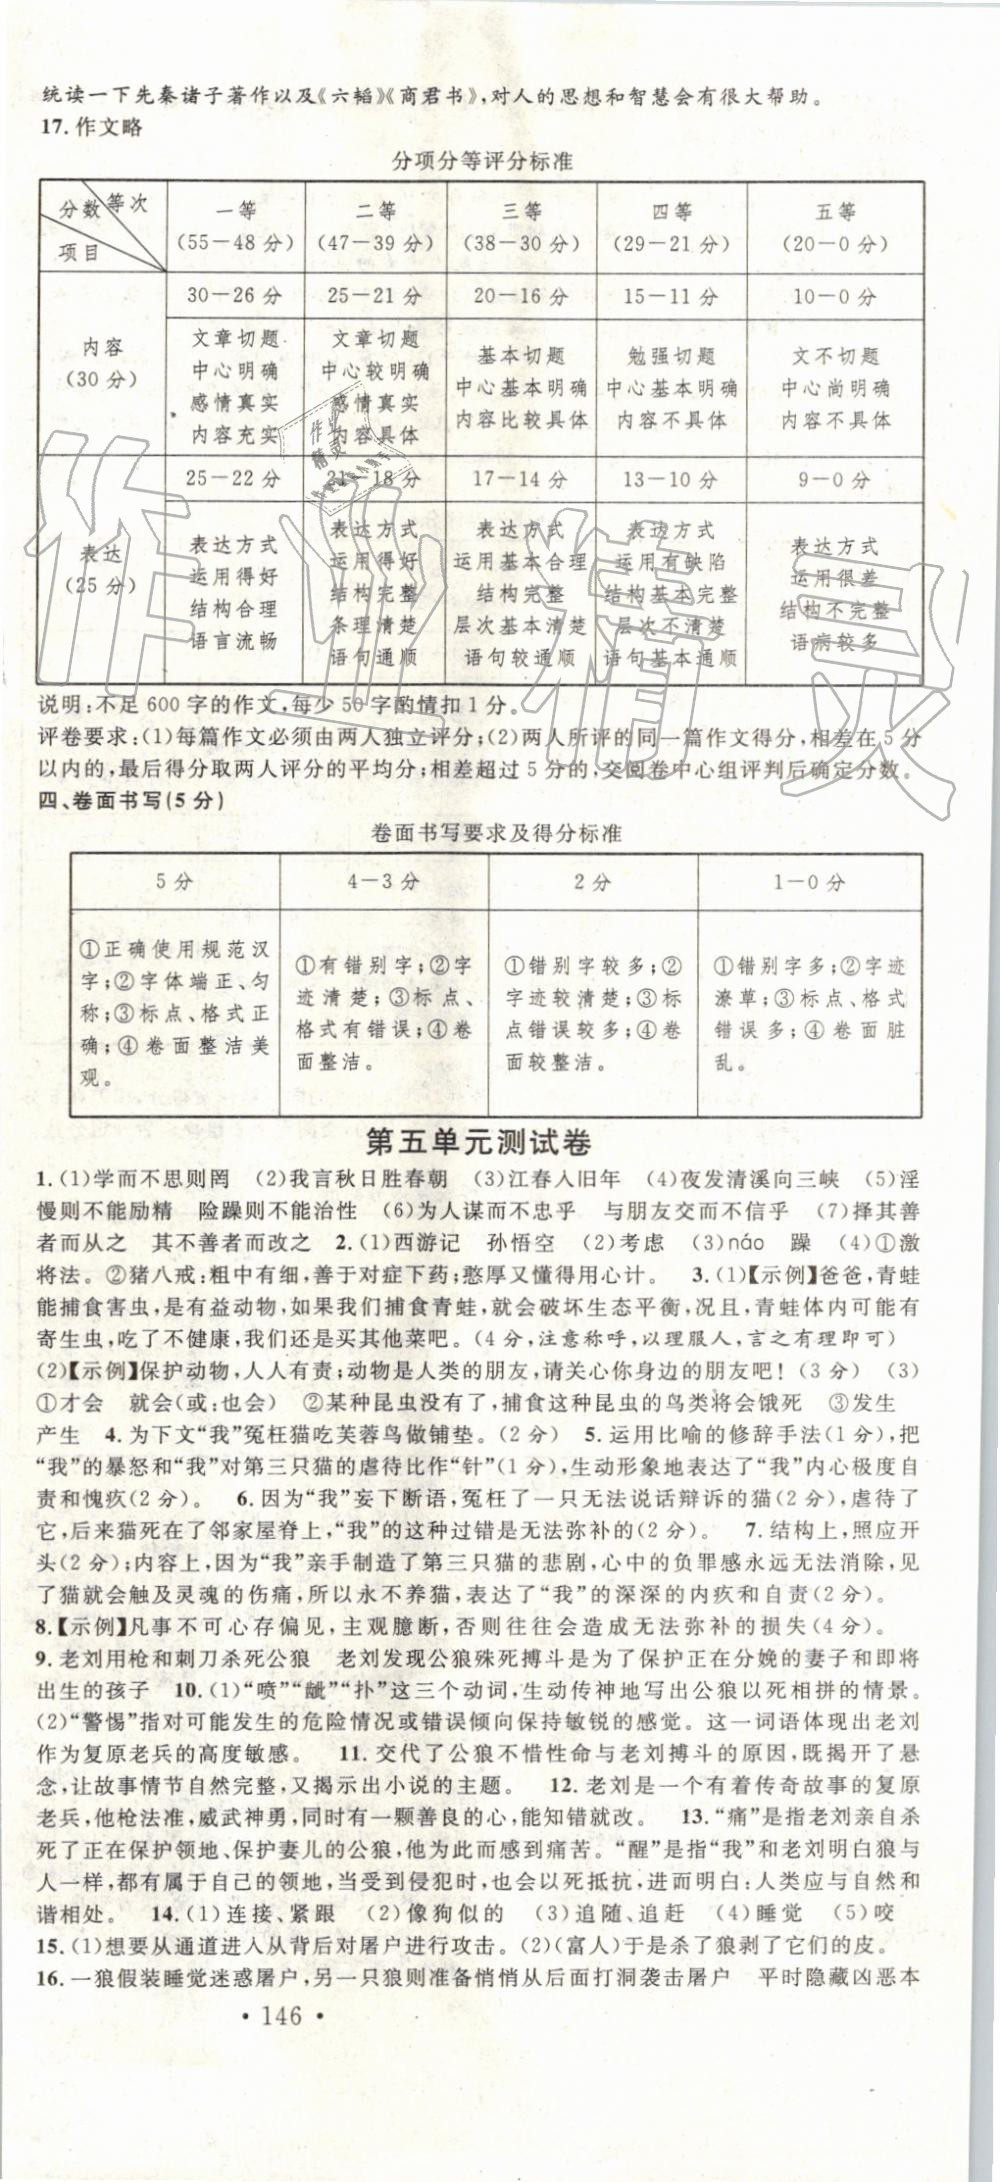 统读一下先秦诸子著作以及《六韬》《商君书》,对人的思想和智慧会有很大帮助。
17.作文略
分项分等评分标准
分数 等次 项目
一等 (55－48 分)
二等 (47－39 分)
三等 (38－30 分)
四等 (29－21 分)
五等 (20－0 分)
内容 (30 分)
30－26 分
25－21 分
20－16 分
15－11 分
10－0 分
文章切题
中心明确
感情真实
内容充实
文章切题
中心较明确
感情真实
内容具体
基本切题
中心基本明确
内容比较具体
勉强切题
中心基本明确
内容不具体
文不切题
中心尚明确
内容不具体
表达 (25 分)
25－22 分
21－18 分
17－14 分
13－10 分
9－0 分
表达方式
运用得好
结构合理
语言流畅
表达方式
运用得好
结构完整
条理清楚
语句通顺
表达方式
运用基本合理
结构完整
层次基本清楚
语句较通顺
表达方式
运用有缺陷
结构基本完整
层次不清楚
语句基本通顺
表达方式
运用很差
结构不完整
语病较多
说明:不足 600 字的作文,每少 50 字酌情扣 1 分。
评卷要求:(1)每篇作文必须由两人独立评分;(2)两人所评的同一篇作文得分,相差在 5 分
以内的,最后得分取两人评分的平均分;相差超过 5 分的,交阅卷中心组评判后确定分数。
四、卷面书写(5 分)
卷面书写要求及得分标准
5 分
4－3 分
2 分
1－0 分
①正确使用规范汉
字;②字体端正、匀
称;③标点、格式正
确;④卷面整洁美
观。
①有错别字;②字
迹清楚;③标点、
格式有错误;④卷
面整洁。
①错别字较多;②
字迹较清楚;③标
点错误较多;④卷
面较整洁。
①错别字多;②字迹
潦草;③标点、格式
错误多;④卷面脏
乱。
第五单元测试卷
1.(1)学而不思则罔 (2)我言秋日胜春朝 (3)江春入旧年 (4)夜发清溪向三峡 (5)淫
慢则不能励精 险躁则不能治性 (6)为人谋而不忠乎 与朋友交而不信乎 (7)择其善
者而从之 其不善者而改之 2.(1)西游记 孙悟空 (2)考虑 (3)náo 躁 (4)①激
将法。②猪八戒:粗中有细,善于对症下药;憨厚又懂得用心计。 3.(1)【示例】爸爸,青蛙
能捕食害虫,是有益动物,如果我们捕食青蛙,就会破坏生态平衡,况且,青蛙体内可能有
寄生虫,吃了不健康,我们还是买其他菜吧。(4 分,注意称呼,以理服人,言之有理即可)
(2)【示例】保护动物,人人有责;动物是人类的朋友,请关心你身边的朋友吧！(3 分) (3)
①才会 就会(或:也会) ②某种昆虫没有了,捕食这种昆虫的鸟类将会饿死 ③发生
产生 4.为下文“我”冤枉猫吃芙蓉鸟做铺垫。(2 分) 5.运用比喻的修辞手法(1 分),把
“我”的暴怒和“我”对第三只猫的虐待比作“针”(1 分),生动形象地表达了“我”内心极度自
责和愧疚(2 分)。 6.因为“我”妄下断语,冤枉了一只无法说话辩诉的猫(2 分),虐待了
它,后来猫死在了邻家屋脊上,“我”的这种过错是无法弥补的(2 分)。 7.结构上,照应开
头(2 分);内容上,因为“我”亲手制造了第三只猫的悲剧,心中的负罪感永远无法消除,见
了猫就会触及灵魂的伤痛,所以永不养猫,表达了“我”的深深的内疚和自责(2 分)。
8.【示例】凡事不可心存偏见,主观臆断,否则往往会造成无法弥补的损失(4 分)。
9.老刘用枪和刺刀杀死公狼 老刘发现公狼殊死搏斗是为了保护正在分娩的妻子和即将
出生的孩子 10.(1)“喷”“龇”“扑”这三个动词,生动传神地写出公狼以死相拼的情景。
(2)“警惕”指对可能发生的危险情况或错误倾向保持敏锐的感觉。这一词语体现出老刘
作为复原老兵的高度敏感。 11.交代了公狼不惜性命与老刘搏斗的原因,既解开了悬
念,让故事情节自然完整,又揭示出小说的主题。 12.老刘是一个有着传奇故事的复原
老兵,他枪法准,威武神勇,同时有一颗善良的心,能知错就改。 13.“痛”是指老刘亲自杀
死了正在保护领地、保护妻儿的公狼,他为此而感到痛苦。“醒”是指“我”和老刘明白狼与
人一样,都有属于自己的领地,当受到侵犯时,也会以死抵抗,进而明白:人类应与自然和
谐相处。 14.(1)连接、紧跟 (2)像狗似的 (3)追随、追赶 (4)睡觉 (5)咬
15.(1)想要从通道进入从背后对屠户进行攻击。(2)(富人)于是杀了狼剥了它们的皮。
16.一狼假装睡觉迷惑屠户,另一只狼则准备悄悄从后面打洞袭击屠户 平时隐藏凶恶本
· 146 ·
作业精灵